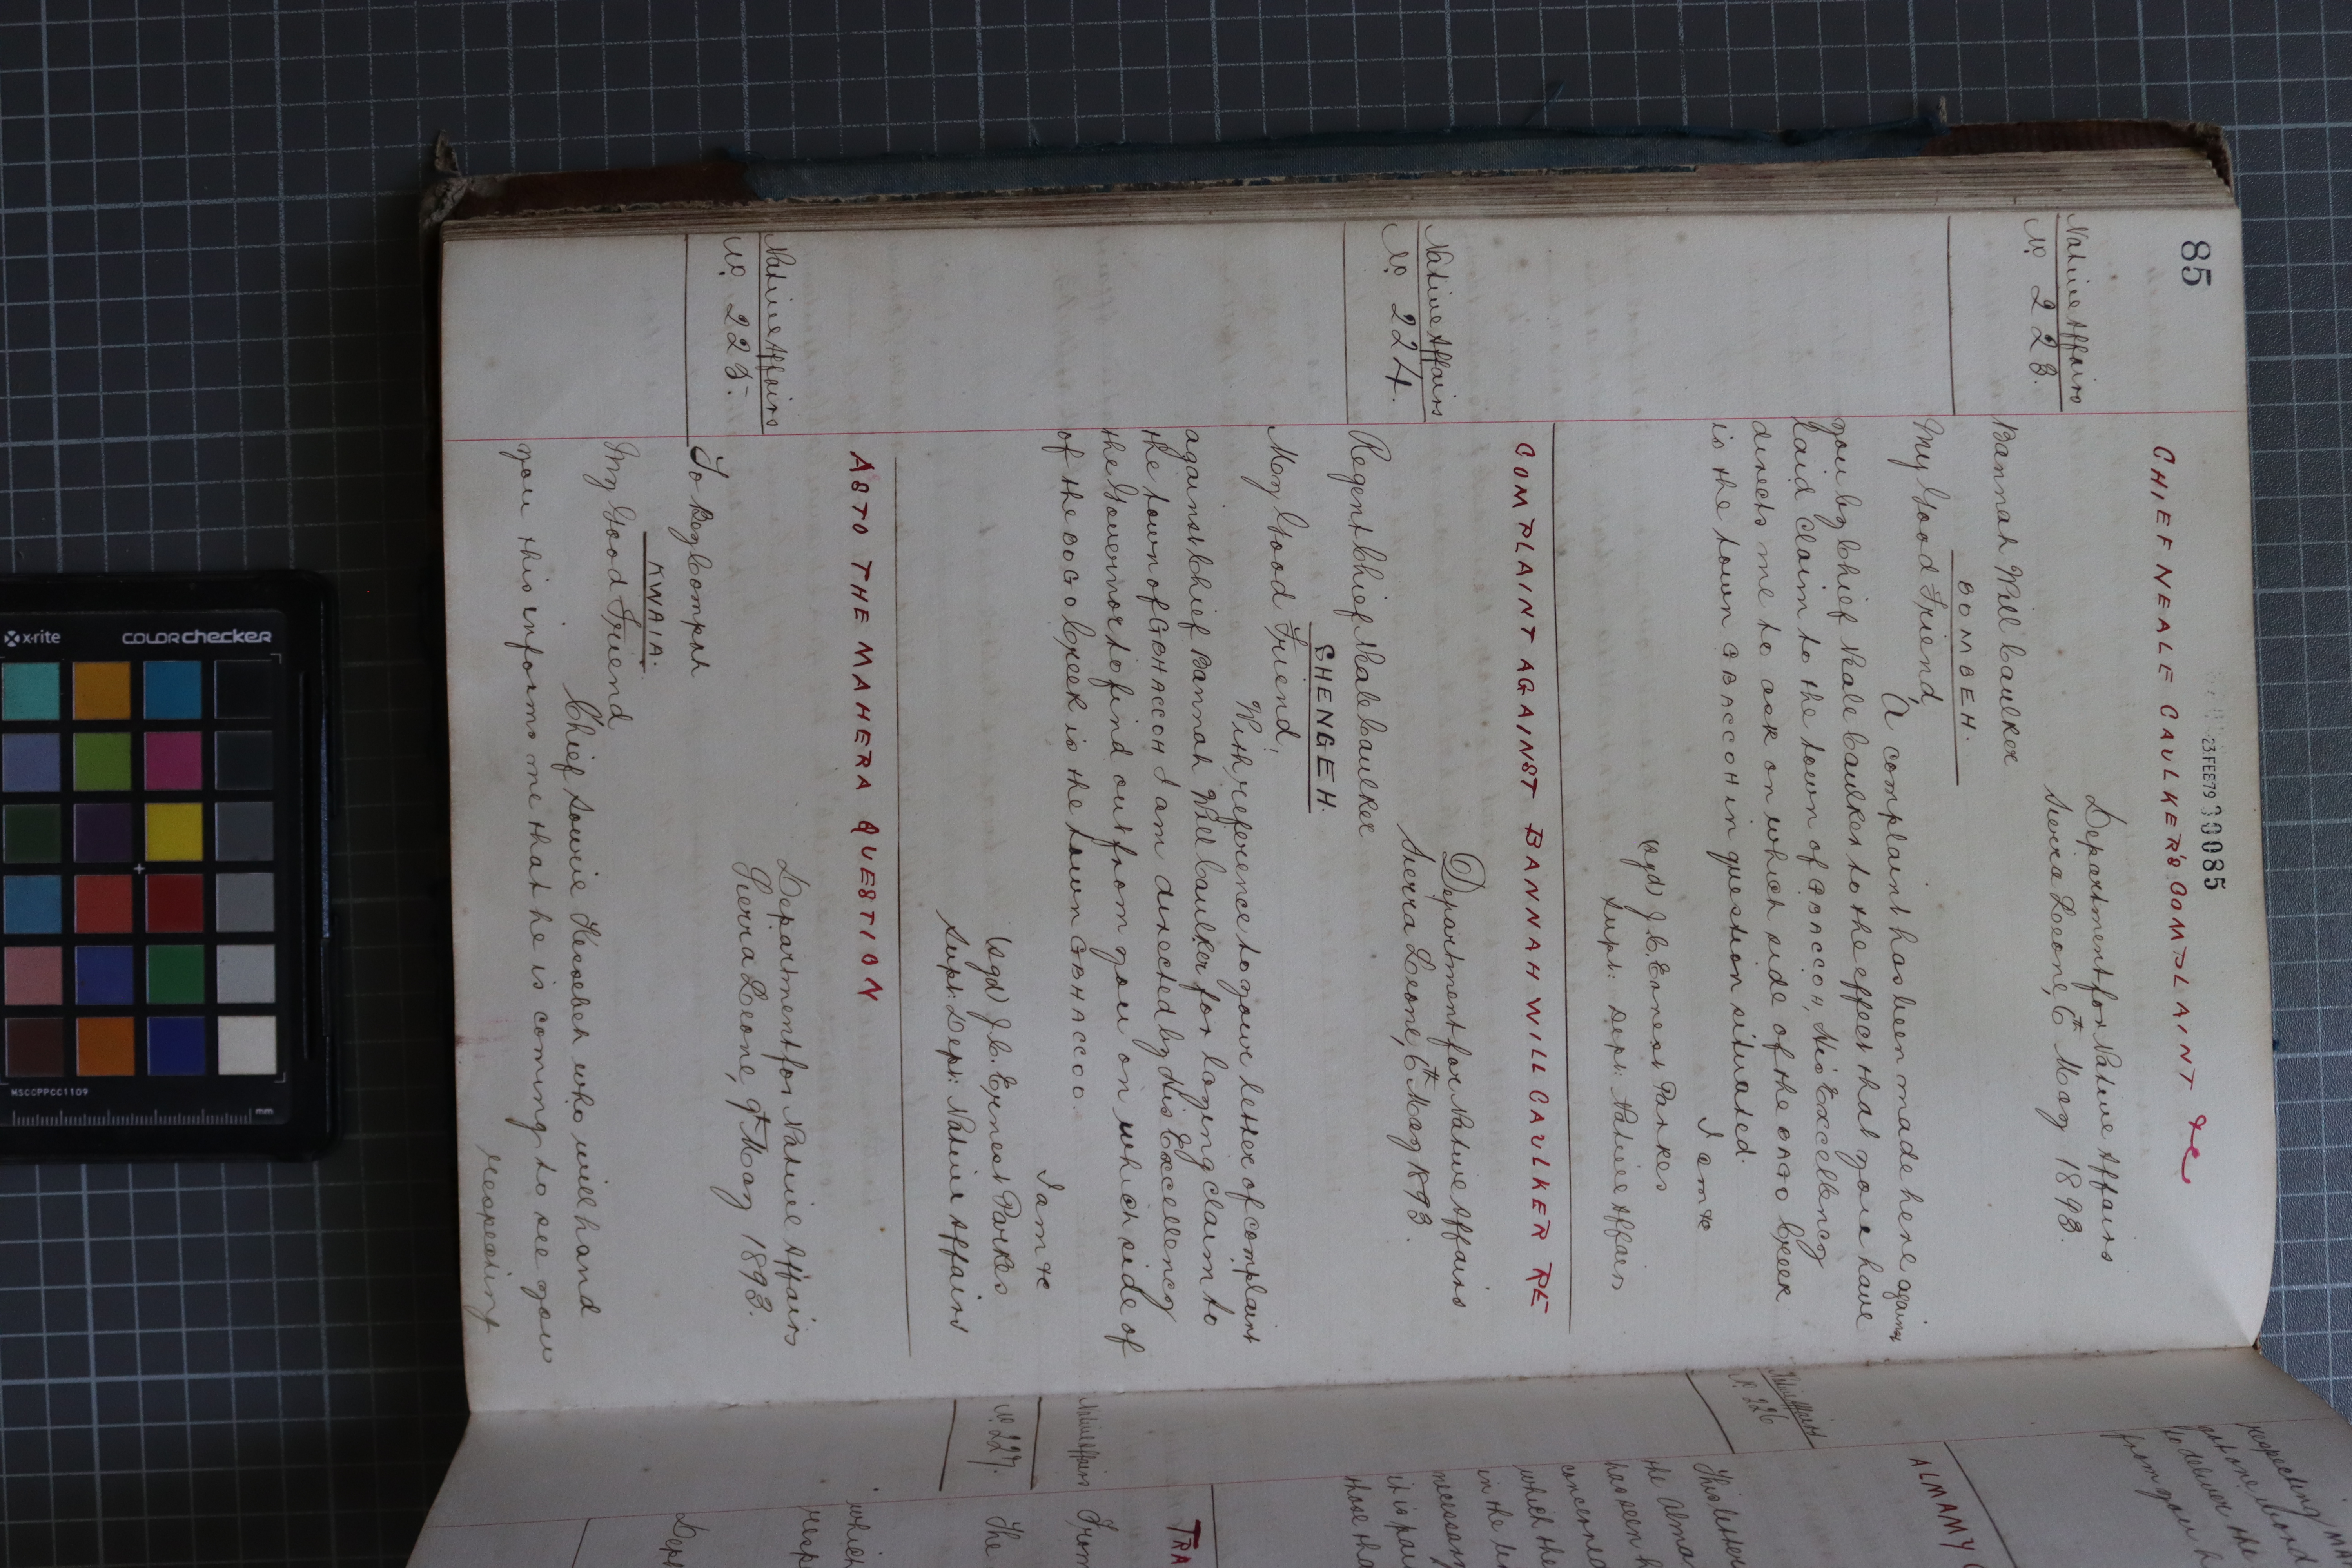 85
23FEB79 30085
CHIEF NEALE CAULKER'S COMPLAINT &c
Native Affairs
No. 223.
Department for Native Affairs
Sierra Leone, 6th May 1893.
Bannah Will Caulker
BOMBEH.
My Good Friend,
A complaint has been made here against
you by Chief Neale Caulker to the effect that you have
laid claim to the town of
His Excellency
directs me to ask on which side of the
Creek
is the town
in question situated.
I am &c
(sgd) J.C. Ernest Parkes
Supt: Dept: Native Affairs
COMPLAINT AGAINST BANNAH WILL CAULKER RE
Native Affairs
No. 224.
Department for Native Affairs
Sierra Leone, 6th May 1893.
Regent Chief Neale Caulker
SHENGEH.
My Good Friend,
With reference to your letter of complaint
against Chief Bannah Will Caulker for laying claim to
the town of GBHACCOH I am directed by His Excellency
the Governor to find out from you on which side of
of the
Creek is the town GBHACCO.
I am &c
(sgd) J.C. Ernest Parkes
Supt: Dept: Native Affairs
AS TO THE MAHERA QUESTION
Native Affairs
No. 225.
Department for Native Affairs
Sierra Leone, 9th May 1893.
To Bey Compah
KWAIA.
My Good Friend
Chief Sourie Kessebeh who will hand
you this informs me that he is coming to see you
respecting
respecting
to deliver the
from you
ALMAMY
Native Affairs
No. 226
This letter
the Alma
has been
concerned
which the
in the
necessary
it is
those tha
TRA
Native Affairs
No. 227.
From
The
which
resp
Dep
x-rite
COLORchecker
MSCCPPCC1109
mm